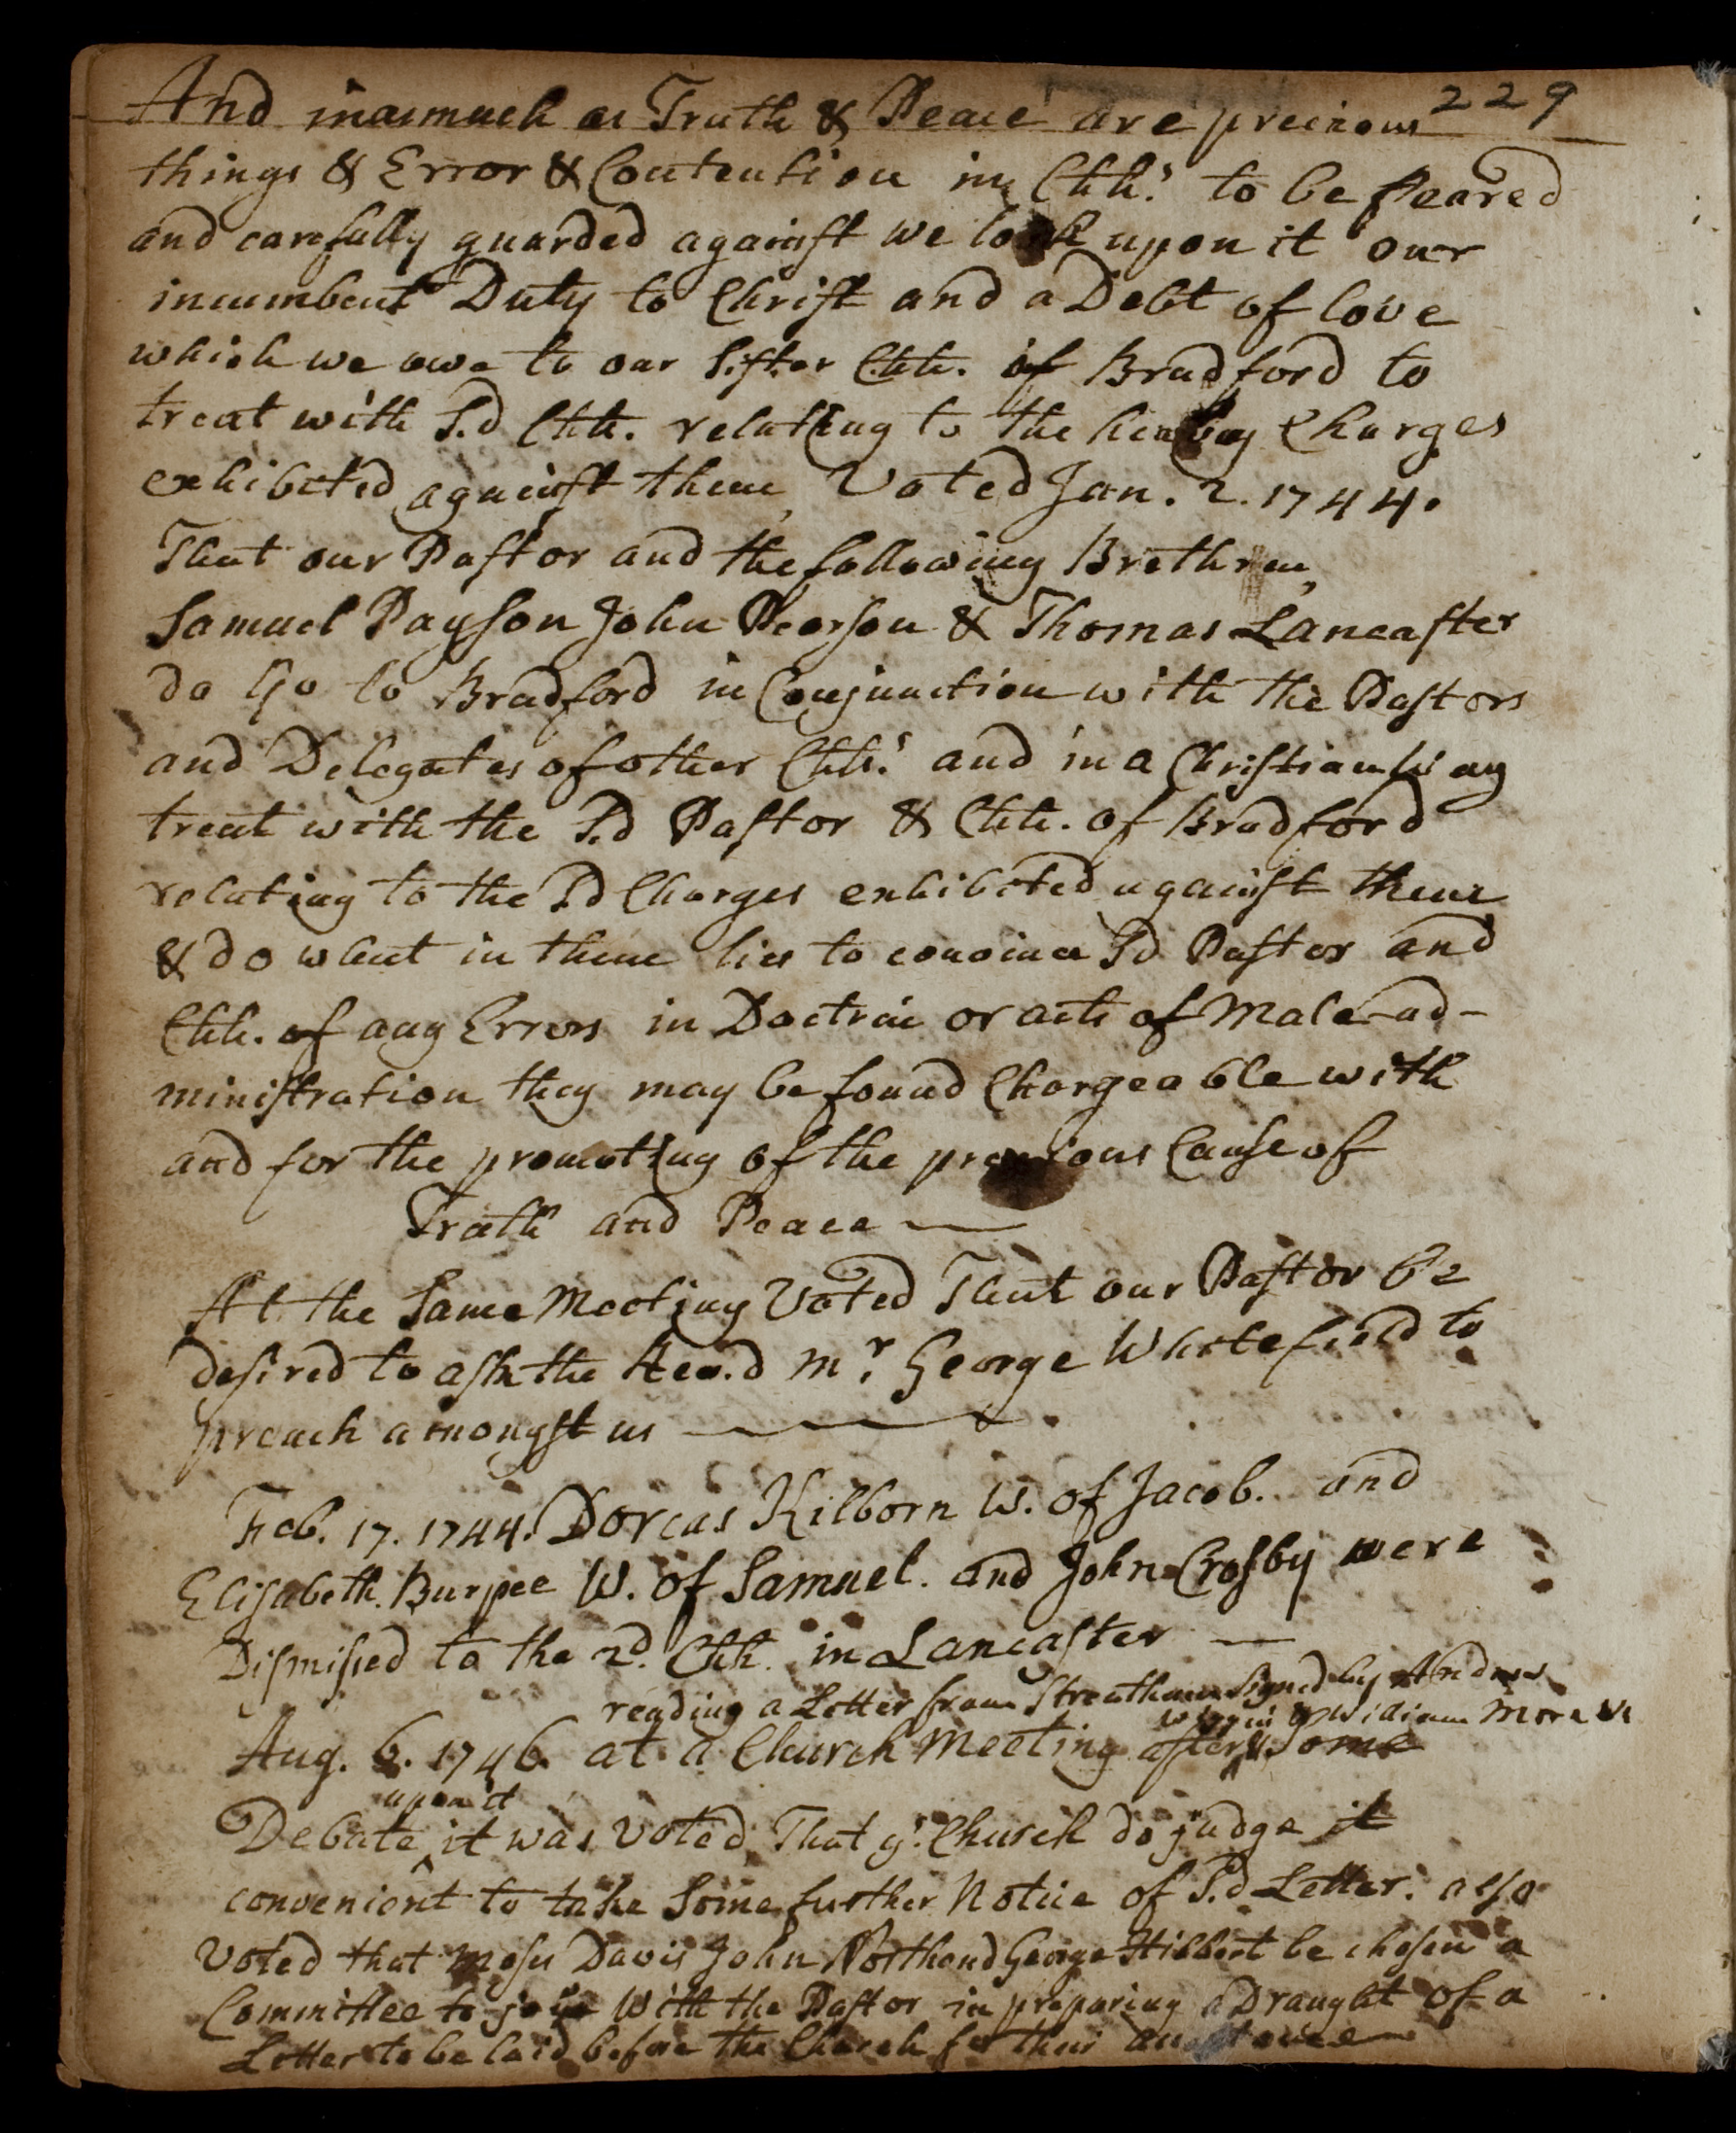 229
And inasmuch as Truth & Peace are precious
things & Error & Contention in Chhs. to be feared
and carefully guarded against we look upon it our
incumbent Duty to Christ and a Debt of love
which we owe to our Sister Chh. of Bradford to
treat with S.d Chh. relating to the heavy Charges
exhibited against them, Voted Jan. 2. 1744.
That our Pastor and the following Brethren,
Samuel Payson John Pearson & Thomas Lancaster
do Go to Bradford in Conjunction with the Pastors
and Delegates of other Chhs. and in a Christian Way
treat with the S.d Pastor & Chh. of Bradford
relating to the S.d Charges exhibited against them
& do what in them lies to convince S.d Pastor and
Chh. of any Errors in Doctrine or acts of Male-ad-
ministration they may be found Chargeable with
and for the promoting of the precious Cause of
Truth and Peace —
At the Same Meeting Voted That our Pastor be
desired to ask the Rev.d Mr. George Whitefield to
preach amongst us —
Feb. 17. 1744. Dorcas Kilborn W. of Jacob. and
Elisabeth Burpee W. of Samuel. and John Crosby were
Dismissed to the 2d. Chh. in Lancaster —
reading a Letter from Streatham Signed by Andrew
Wiggin & William Moore
Aug. 6. 1746. at a Church Meeting after Some
upon it
Debate ^ it was voted That ye. Church do judge it
convenient to take Some further Notice of S.d Letter. also
Voted that Moses Davis John Northend George Hibbert be chosen a
Committee to joyn With the Pastor in preparing a Draught of a
Letter to be laid before the Church for their